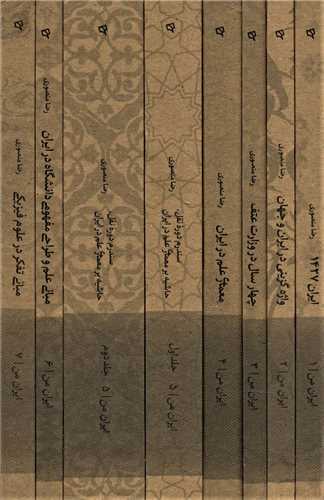 رضا منصوری
ایران ۱۴۲۷
ایران من | ۱
رضا منصوری
واژه‌گزینی در ایران و جهان
ایران من | ۲
رضا منصوری
چهار سال در وزارت عتف
ایران من | ۳
رضا منصوری
معماری علم در ایران
ایران من | ۴
رضا منصوری
سندرم دورهٔ نقل:
حاشیه بر معماری علم در ایران
ایران من | ۵ جلد اول
رضا منصوری
سندرم دورهٔ نقل:
حاشیه بر معماری علم در ایران
ایران من | ۵ جلد دوم
رضا منصوری
مبانی علم و طراحی مفهومی دانشگاه در ایران
ایران من | ۶
رضا منصوری
مبانی تفکر در علوم فیزیکی
ایران من | ۷